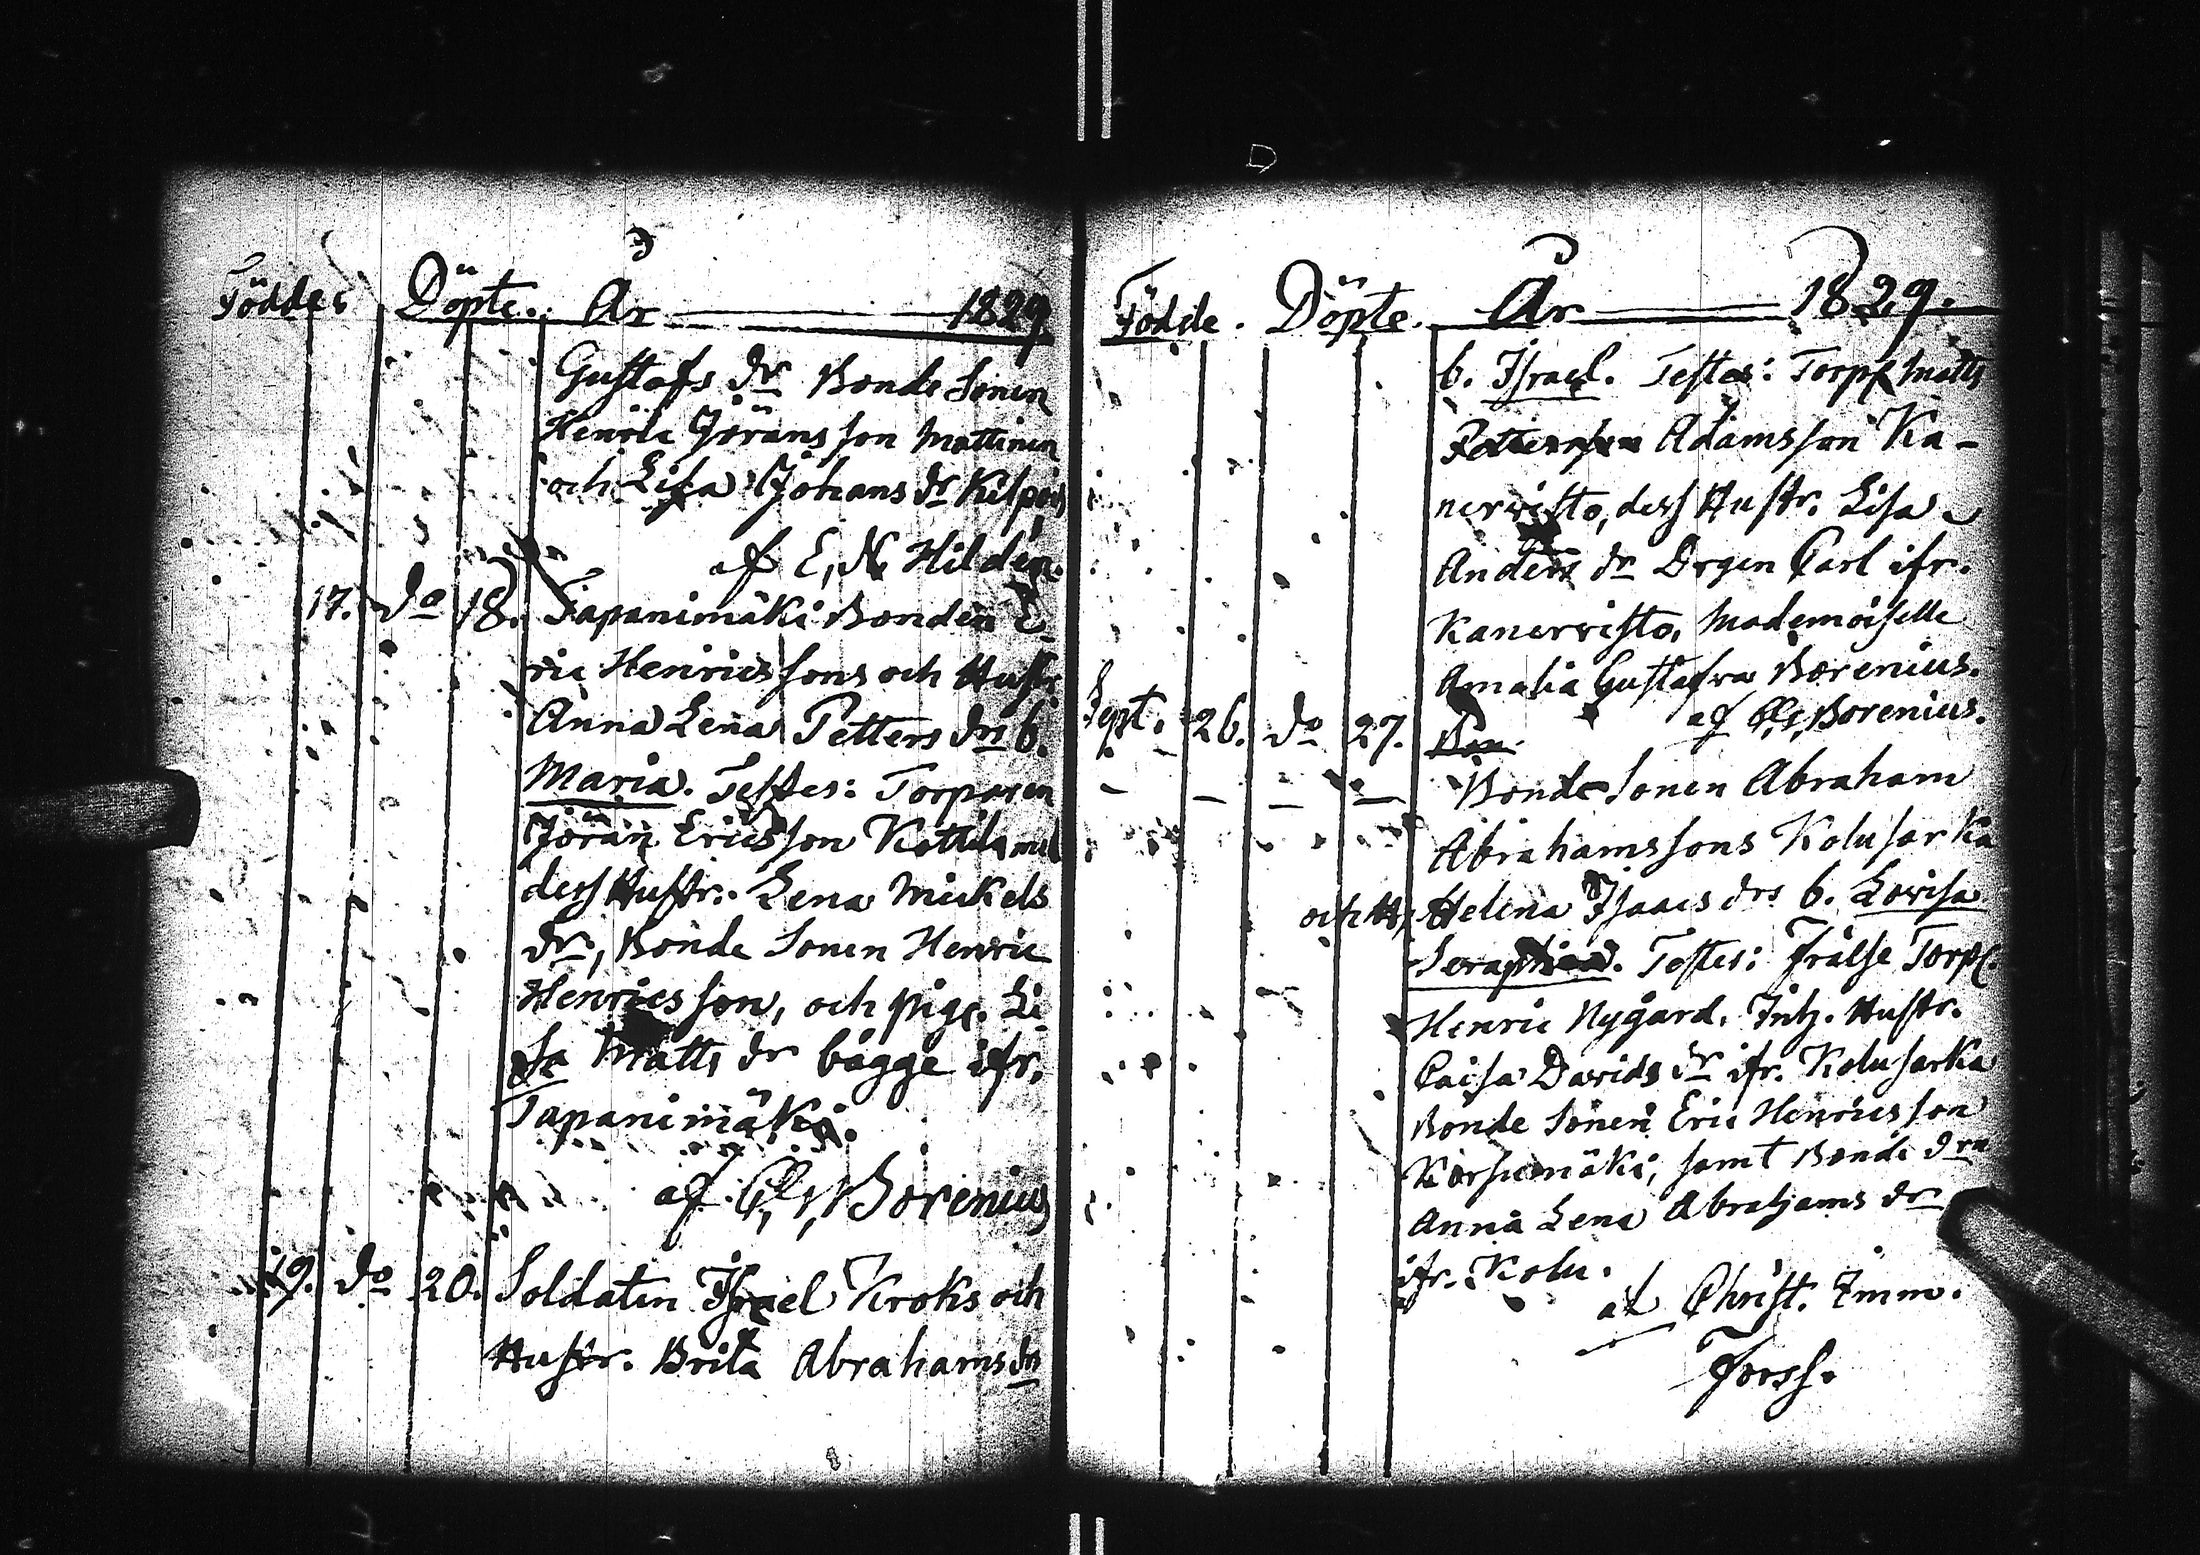 Födde. Döpte. År 1829
Gustafs dr Bonde Sonen
Henric Jöransson Mattinen
och Lisa Johans dr Kilpois
af E, N, Hildén.
17. do 18. Tapanimäki Bonden E
ric Henricssons och Hustr.
Anna Lena Petters drs b.
Maria. Testes: Torparen
Jöran Ericsson Kottila med
dess Hustr. Lena Mickels
dr, Bonde Sonen Henric
Henricsson, och pig. Li
sa Matts dr bägge ifr.
Tapanimäki.
af C, G, Borenius
19. do 20. Soldaten Israel Kroks och
Hustr. Brita Abrahams drs
Födde. Döpte. År 1829.
b. Israel. Testes: Torp. Matts
Pettersson Adamsson Ka-
nervisto, dess Hustr. Lisa
Anders dr Drgen Carl ifr.
Kanervisto, Mademoiselle
Amalia Gustafva Borenius.
af C, G, Borenius.
Sept. 26. do 27. Bon
Bonde Sonen Abraham
Abrahamssons Kolusarka
och H, Helena Isaacs drs b. Lovisa
Seraphina. Testes: Frälse Torp.
Henric Nygård. Inh. Hustr.
Caisa Davids dr ifr. Kolusarka
Bonde Sonen Eric Henricsson
Korsumäki, samt Bonde dra
Anna Lena Abrahams dr
ifr. Kolu.
af Christ. Imm.
Forss.